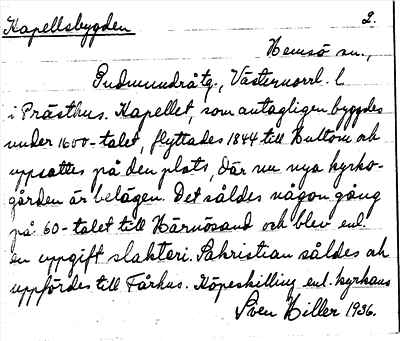 Kapellsbygden 2.
Hemsö sn.,
Gudmundrå tg., Västernorrl. l.
i Prästhus. Kapellet, som antagligen byggdes
under 1600-talet, flyttades 1844 till Hultom och
uppsattes på den plats, där nu nya kyrko-
gården är belägen. Det såldes någon gång
på 60-talet till Härnösand och blev enl.
en uppgift slakteri. Sakristian såldes och
uppfördes till Fårhus. Köpeskilling enl. kyrkans
Sven Hiller 1936.